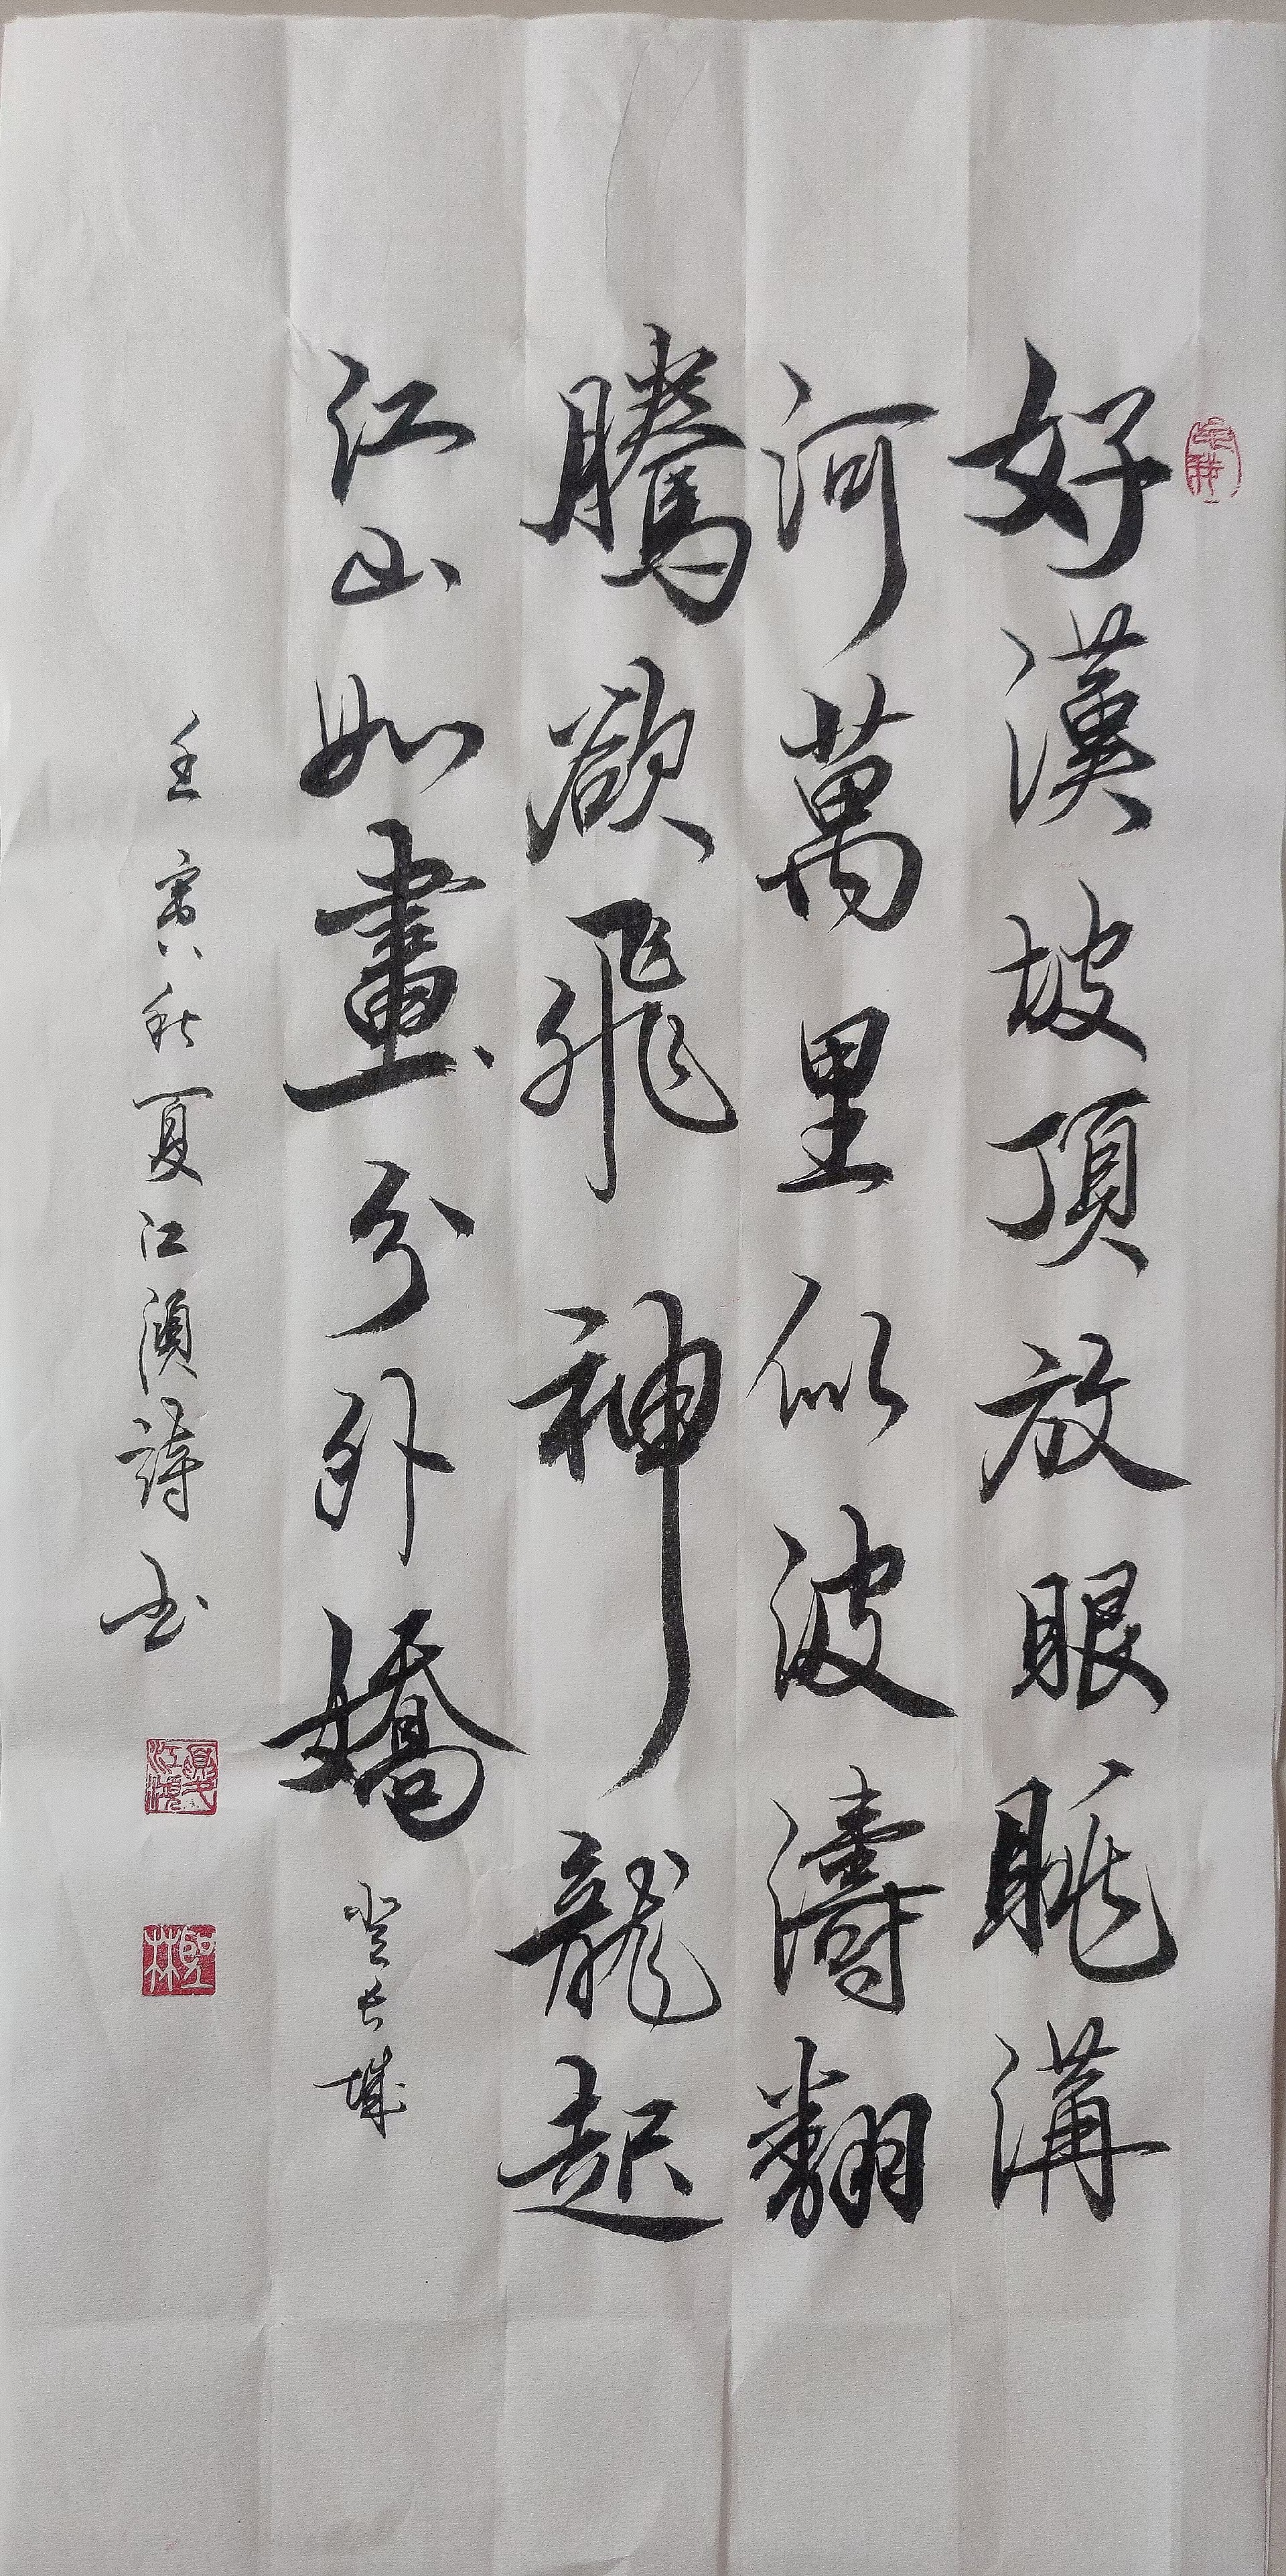 好漢坡頂放眼眺溝
河萬里似波濤翻
騰欲飛神龍起
江山如畫分外嬌
登長城
壬寅秋夏江湏詩书